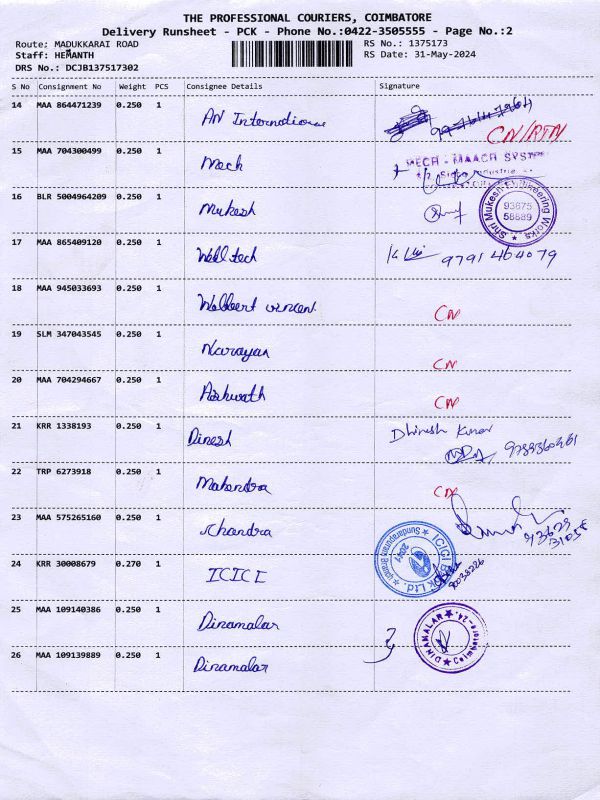 THE PROFESSIONAL COURIERS, COIMBATORE
Delivery Runsheet - PCK - Phone No.:0422-3505555 - Page No.:2
Route: MADUKKARAI ROAD RS No.: 1375173
Staff: HEMANTH RS Date: 31-May-2024
DRS No.: DCJB137517302
S No Consignment No Weight PCS Consignee Details Signature
14 MAA 864471239 0.250 1 AN International CN/RTN
15 MAA 704300499 0.250 1 Mech MECH - MAACH SYSTE
16 BLR 5004964209 0.250 1 Mukesh Shri Mukesh Engineering Works 93675 58889
17 MAA 865409120 0.250 1 Well tech 9791464079
18 MAA 945033693 0.250 1 CN
19 SLM 347043545 0.250 1 Narayan CN
20 MAA 704294667 0.250 1 Aishwath CN
21 KRR 1338193 0.250 1 Dinesh Dhinesh Kumar
22 TRP 6273918 0.250 1 Mahendra CN
23 MAA 575265160 0.250 1 Chandra
24 KRR 30008679 0.270 1 ICICI ICICI Bank Ltd. Sundarapuram Branch
25 MAA 109140386 0.250 1 Dinamalar DINAMALAR Coimbatore-24.
26 MAA 109139889 0.250 1 Dinamalar